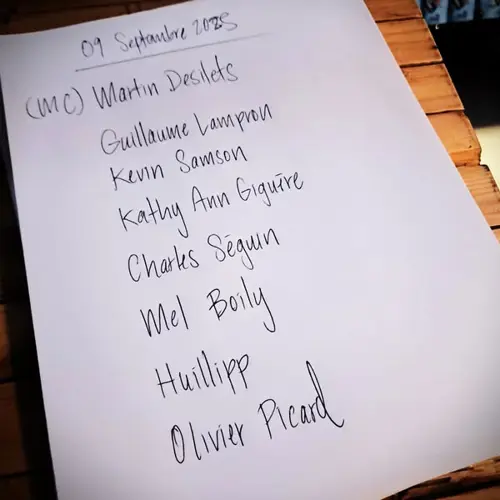 09 Septembre 2025
(MC) Martin Desilets
Guillaume Lampron
Kevin Samson
Kathy Ann Giguère
Charles Séguin
Mel Boily
Huillipp
Olivier Picard